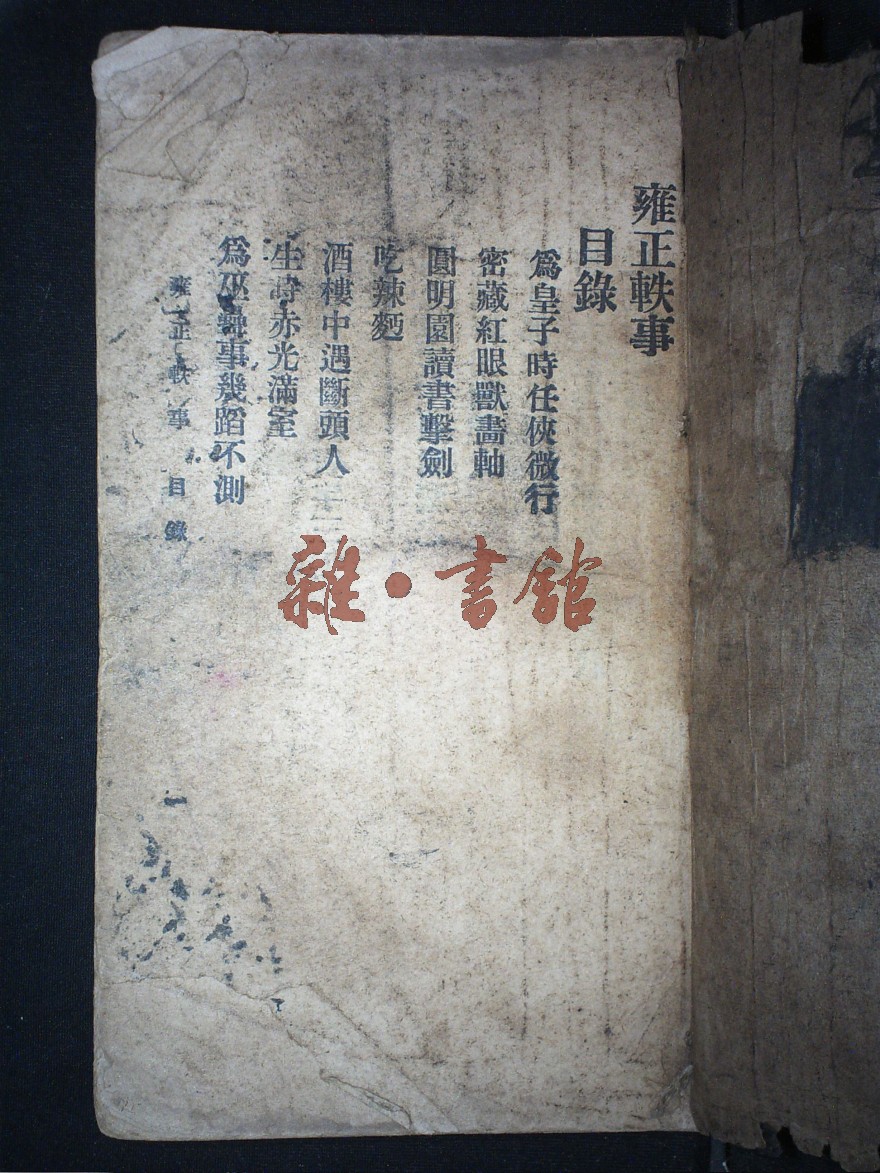 雍正軼事
目錄
爲皇子時任俠微行
密藏紅眼獸畵軸
圓明園讀書擊劍
吃辣麪
酒樓中遇斷頭人
生時赤光滿室
爲巫蠱事幾蹈不測
雍正軼事 目錄
雜·書館